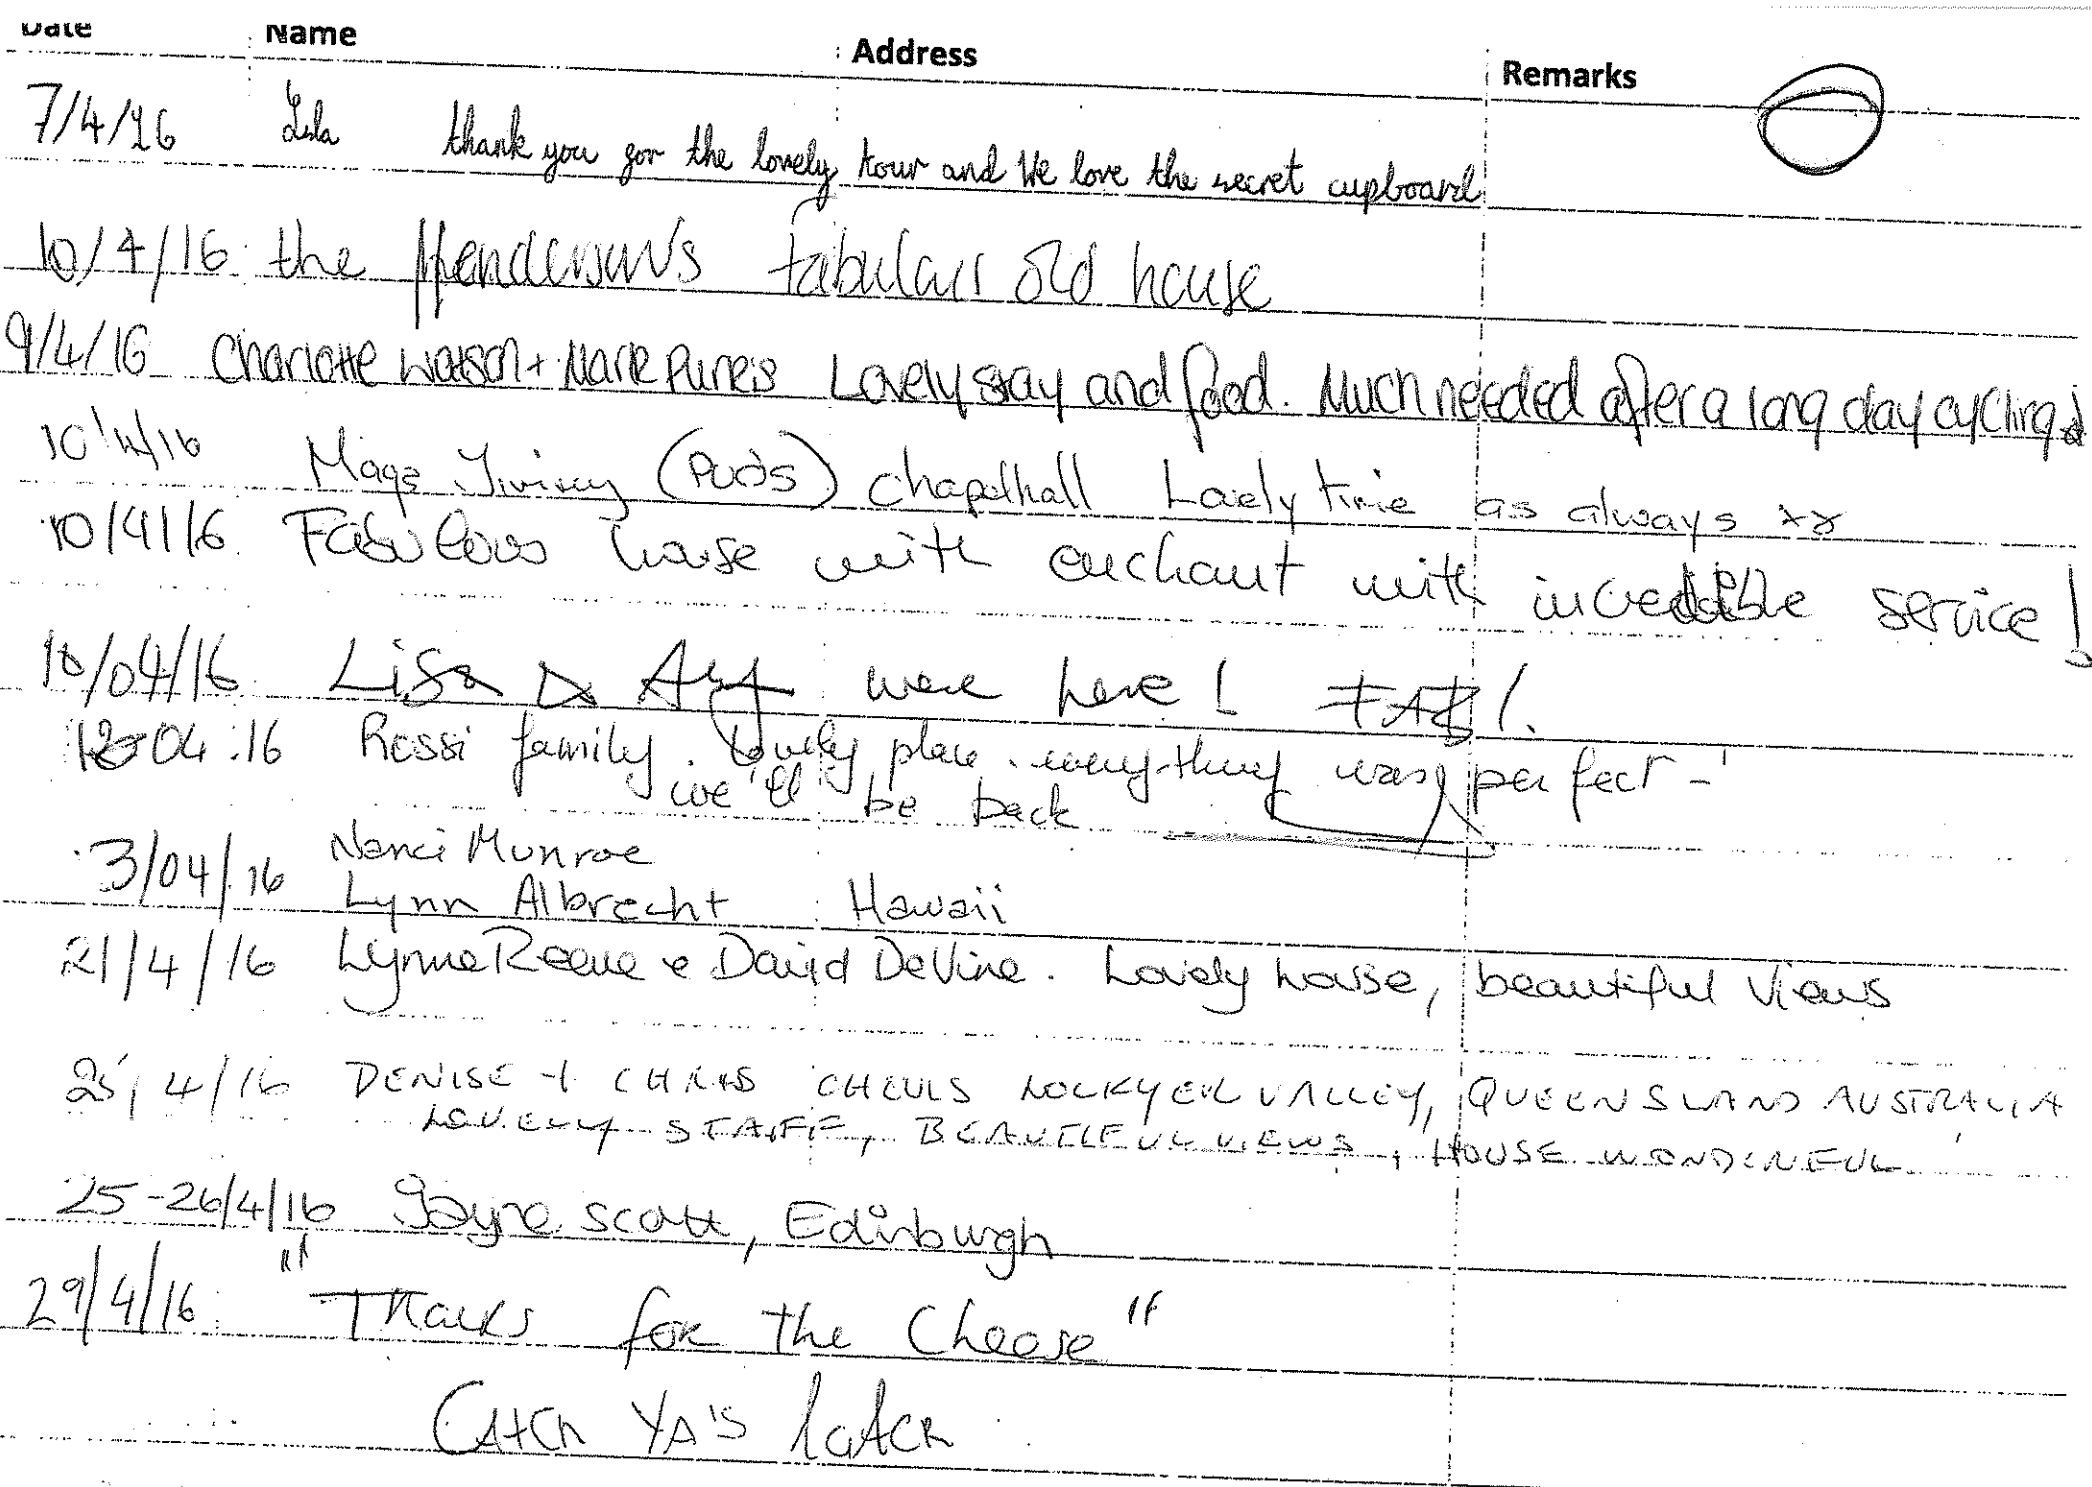 Date Name Address Remarks
7/4/16 Isla thank you for the lovely tour and We love the secret cupboard
10/4/16 the Henderson's fabulous old house
9/4/16 Charlotte Watson + Mark Purves Lovely stay and food. Much needed after a long day cycling!
10/4/16 Mags (Puds) Chapelhall Lovely time as always xx
10/4/16 Fabulous house with enchant with incredible service!
10/04/16 Lisa & were here! FAB!
04.16 Rossi family. Lovely place. everything was perfect -
we'll be back
3/04/16 Nanci Munroe
Lynn Albrecht Hawaii
21/4/16 Lynne Reeve & David DeVine. Lovely house, beautiful views
25/4/16 DENISE + CHRIS LOCKYER VALLEY, QUEENSLAND AUSTRALIA
LOVELY STAFF, BEAUTIFUL VIEWS, HOUSE WONDERFUL
25-26/4/16 Jayne Scott, Edinburgh
29/4/16 "Thanks for the Cheese"
Catch YA's later